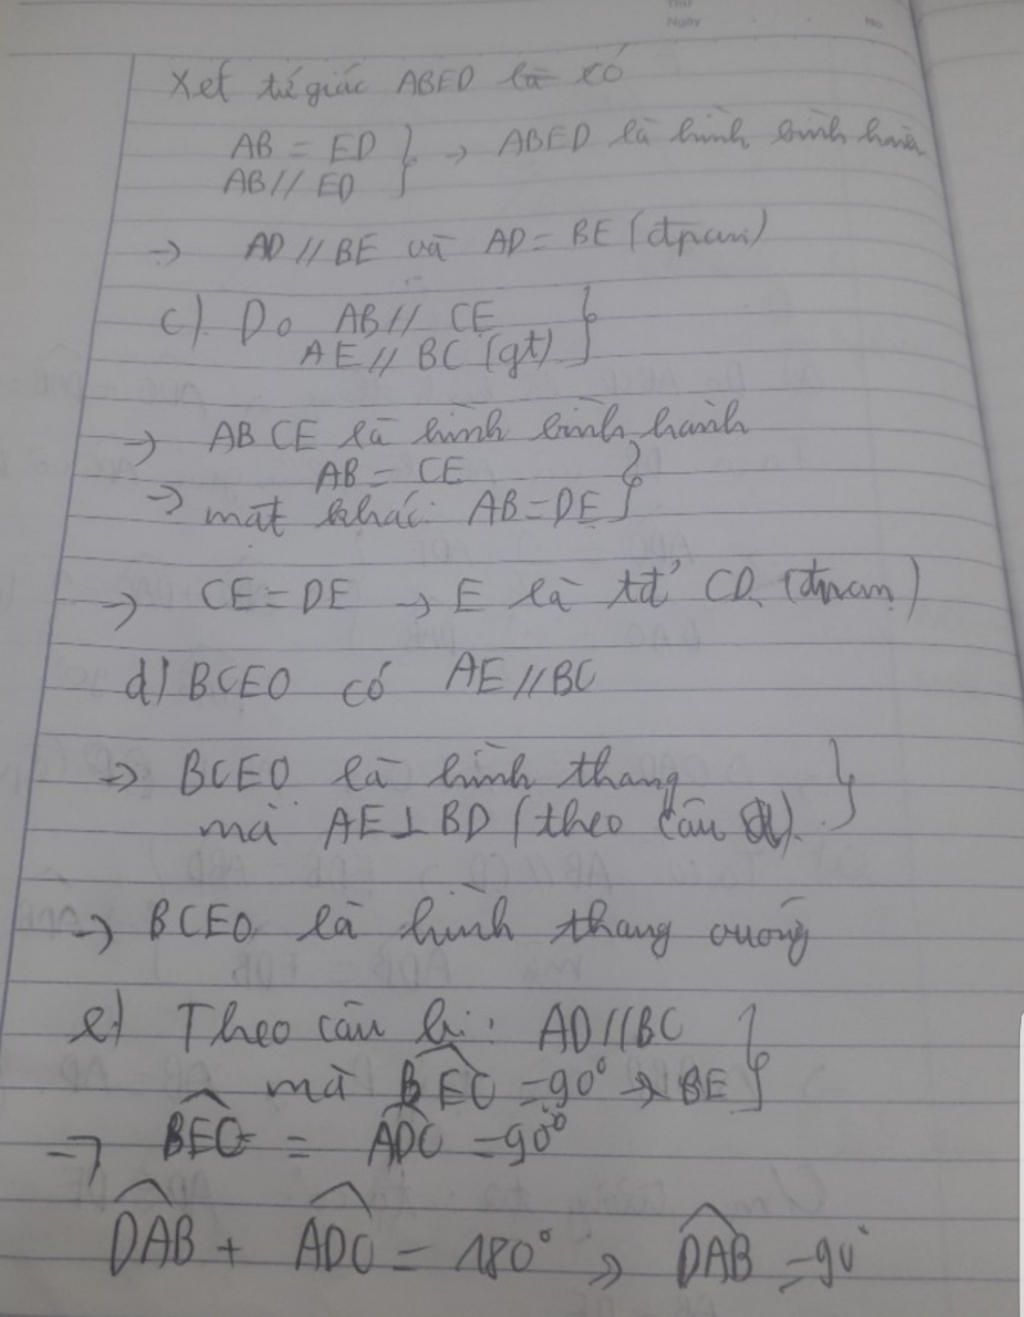 Thứ
Ngày No
Xét tứ giác ABED là có
AB = ED } → ABED là hình bình hành
AB // ED
→ AD // BE và AD = BE (đpcm)
c) Do AB // CE }
AE // BC (gt)
→ ABCE là hình bình hành
AB = CE }
→ mặt khác: AB = DE
→ CE = DE → E là tđ' CD (đpcm)
d) BCEO có AE // BC
→ BCEO là hình thang }
mà AE ⊥ BD (theo câu a)
→ BCEO là hình thang vuông
e) Theo câu b: AD // BC }
mà BEC = 90° → BE
→ BEC = ADC = 90°
DAB + ADC = 180° → DAB = 90°